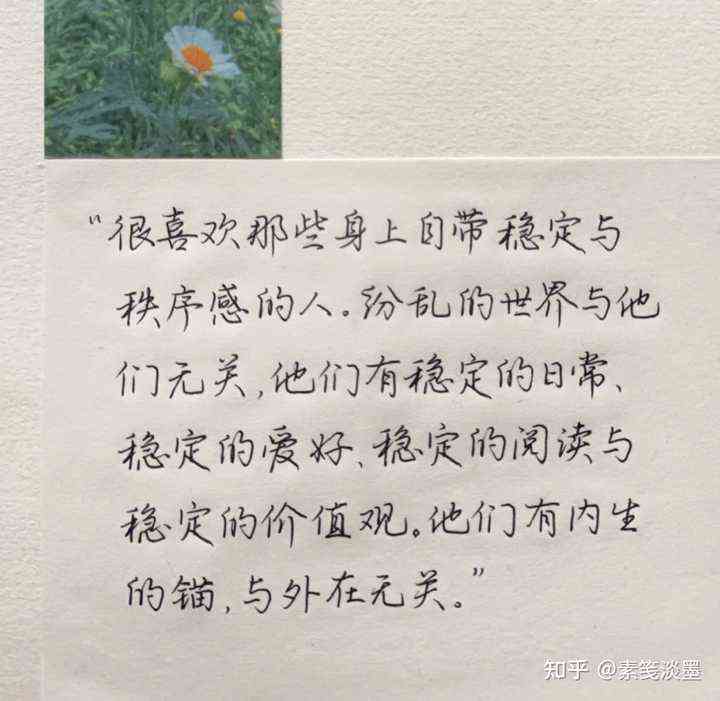 “很喜欢那些身上自带稳定与
秩序感的人。纷乱的世界与他
们无关,他们有稳定的日常、
稳定的爱好、稳定的阅读与
稳定的价值观。他们有内生
的锚,与外在无关。”
知乎 @素笺淡墨